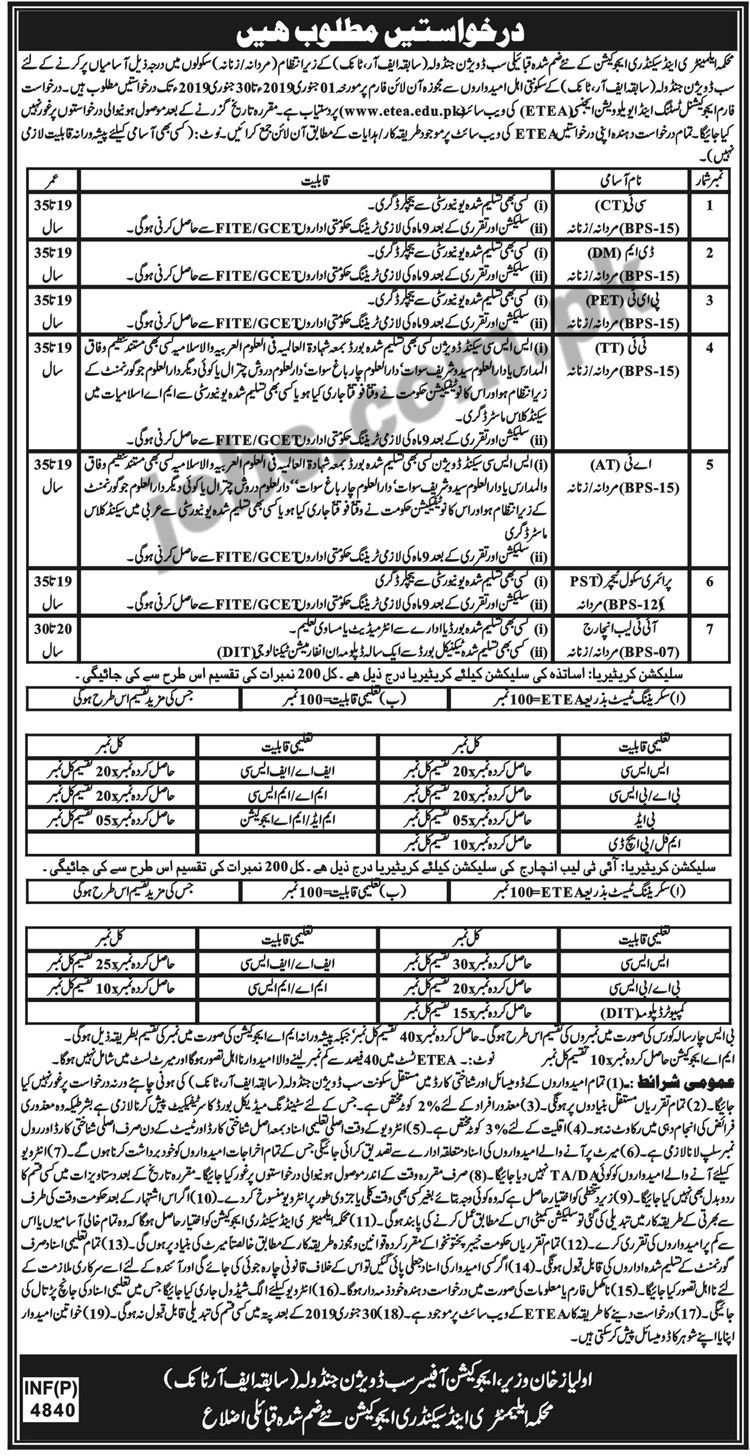 درخواستیں مطلوب ھیں
محکمہ ایلیمنٹری اینڈ سیکنڈری ایجوکیشن کے نئے ضم شدہ قبائلی سب ڈویژن جنڈولہ (سابقہ ایف آر، ٹانک) کے زیر انتظام (مردانہ / زنانہ) سکولوں میں درجہ ذیل آسامیاں پر کرنے کے لئے
سب ڈویژن جنڈولہ (سابقہ ایف آر، ٹانک) کے سکونتی اہل امیدواروں سے مجوزہ آن لائن فارم پر مورخہ 01 جنوری 2019 تا 30 جنوری 2019 تک درخواستیں مطلوب ہیں۔ درخواست
فارم ایجوکیشنل ٹسٹنگ اینڈ ایویلویشن ایجنسی (ETEA) کی ویب سائٹ (www.etea.edu.pk) پر دستیاب ہے۔ مقررہ تاریخ گزرنے کے بعد موصول ہونیوالی درخواستوں پر غور نہیں
کیا جائیگا۔ تمام درخواست دہندہ اپنی درخواستیں ETEA کی ویب سائٹ پر موجود طریقہ کار / ہدایات کے مطابق آن لائن جمع کرائیں۔ نوٹ: (کسی بھی آسامی کیلئے پیشہ ورانہ قابلیت لازمی
نہیں)۔
نمبر شمار نام آسامی قابلیت عمر
1 سی ٹی (CT) (i) کسی بھی تسلیم شدہ یونیورسٹی سے بیچلر ڈگری۔ 19 تا 35
(BPS-15) مردانہ / زنانہ (ii) سلیکشن اور تقرری کے بعد 9 ماہ کی لازمی ٹریننگ حکومتی اداروں FITE/GCET سے حاصل کرنی ہوگی۔ سال
2 ڈی ایم (DM) (i) کسی بھی تسلیم شدہ یونیورسٹی سے بیچلر ڈگری۔ 19 تا 35
(BPS-15) مردانہ / زنانہ (ii) سلیکشن اور تقرری کے بعد 9 ماہ کی لازمی ٹریننگ حکومتی اداروں FITE/GCET سے حاصل کرنی ہوگی۔ سال
3 پی ای ٹی (PET) (i) کسی بھی تسلیم شدہ یونیورسٹی سے بیچلر ڈگری۔ 19 تا 35
(BPS-15) مردانہ / زنانہ (ii) سلیکشن اور تقرری کے بعد 9 ماہ کی لازمی ٹریننگ حکومتی اداروں FITE/GCET سے حاصل کرنی ہوگی۔ سال
4 ٹی ٹی (TT) (i) ایس ایس سی سیکنڈ ڈویژن کسی بھی تسلیم شدہ بورڈ بمعہ شہادۃ العالمیہ فی العلوم العربیہ والاسلامیہ کسی بھی مستند تنظیم وفاق 19 تا 35
(BPS-15) مردانہ / زنانہ المدارس یا دارالعلوم سیدو شریف سوات، دارالعلوم چارباغ سوات، دارالعلوم دروش چترال یا کوئی دیگر دارالعلوم جو گورنمنٹ کے سال
زیر انتظام ہو اور اس کا نوٹیفیکیشن حکومت نے وقتاً فوقتاً جاری کیا ہو یا کسی بھی تسلیم شدہ یونیورسٹی سے ایم اے اسلامیات میں
سیکنڈ کلاس ماسٹر ڈگری۔
(ii) سلیکشن اور تقرری کے بعد 9 ماہ کی لازمی ٹریننگ حکومتی اداروں FITE/GCET سے حاصل کرنی ہوگی۔
5 اے ٹی (AT) (i) ایس ایس سی سیکنڈ ڈویژن کسی بھی تسلیم شدہ بورڈ بمعہ شہادۃ العالمیہ فی العلوم العربیہ والاسلامیہ کسی بھی مستند تنظیم وفاق 19 تا 35
(BPS-15) مردانہ / زنانہ والمدارس یا دارالعلوم سیدو شریف سوات، دارالعلوم چارباغ سوات، دارالعلوم دروش چترال یا کوئی دیگر دارالعلوم جو گورنمنٹ سال
کے زیر انتظام ہو اور اس کا نوٹیفکیشن حکومت نے وقتاً فوقتاً جاری کیا ہو یا کسی بھی تسلیم شدہ یونیورسٹی سے عربی میں سیکنڈ کلاس
ماسٹر ڈگری
(ii) سلیکشن اور تقرری کے بعد 9 ماہ کی لازمی ٹریننگ حکومتی اداروں FITE/GCET سے حاصل کرنی ہوگی۔
6 پرائمری سکول ٹیچر (PST (i) کسی بھی تسلیم شدہ یونیورسٹی سے بیچلر ڈگری 19 تا 35
(BPS-12) مردانہ (ii) سلیکشن اور تقرری کے بعد 9 ماہ کی لازمی ٹریننگ حکومتی اداروں FITE/GCET سے حاصل کرنی ہوگی۔ سال
7 آئی ٹی لیب انچارج (i) کسی بھی تسلیم شدہ بورڈ یا ادارے سے انٹرمیڈیٹ یا مساوی تعلیم۔ 20 تا 30
(BPS-07) مردانہ / زنانہ (ii) کسی بھی تسلیم شدہ ٹیکنیکل بورڈ سے ایک سالہ ڈپلومہ ان انفارمیشن ٹیکنالوجی (DIT) سال
سلیکشن کریٹیریا: اساتذہ کی سلیکشن کیلئے کریٹیریا درج ذیل ھے۔ کل 200 نمبرات کی تقسیم اس طرح سے کی جائیگی۔
(ا) سکریننگ ٹیسٹ بذریعہ ETEA=100 نمبر (ب) تعلیمی قابلیت=100 نمبر جس کی مزید تقسیم اس طرح ہوگی
تعلیمی قابلیت کل نمبر تعلیمی قابلیت کل نمبر
ایس ایس سی حاصل کردہ نمبر 20x تقسیم کل نمبر ایف اے / ایف ایس سی حاصل کردہ نمبر 20x تقسیم کل نمبر
بی اے / بی ایس سی حاصل کردہ نمبر 20x تقسیم کل نمبر ایم اے / ایم ایس سی حاصل کردہ نمبر 20x تقسیم کل نمبر
بی ایڈ حاصل کردہ نمبر 05x تقسیم کل نمبر ایم ایڈ / ایم اے ایجوکیشن حاصل کردہ نمبر 05x تقسیم کل نمبر
ایم فل / پی ایچ ڈی حاصل کردہ نمبر 10x تقسیم کل نمبر
سلیکشن کریٹیریا: آئی ٹی لیب انچارج کی سلیکشن کیلئے کریٹیریا درج ذیل ھے۔ کل 200 نمبرات کی تقسیم اس طرح سے کی جائیگی۔
(ا) سکریننگ ٹیسٹ بذریعہ ETEA=100 نمبر (ب) تعلیمی قابلیت=100 نمبر جس کی مزید تقسیم اس طرح ہوگی
تعلیمی قابلیت کل نمبر تعلیمی قابلیت کل نمبر
ایس ایس سی حاصل کردہ نمبر 30x تقسیم کل نمبر ایف اے / ایف ایس سی حاصل کردہ نمبر 25x تقسیم کل نمبر
بی اے / بی ایس سی حاصل کردہ نمبر 20x تقسیم کل نمبر ایم اے / ایم ایس سی حاصل کردہ نمبر 10x تقسیم کل نمبر
کمپیوٹر ڈپلومہ (DIT) حاصل کردہ نمبر 15x تقسیم کل نمبر
بی ایس چار سالہ کورس کی صورت میں نمبروں کی تقسیم اس طرح ہوگی۔ حاصل کردہ نمبر 40x تقسیم کل نمبر، جبکہ پیشہ ورانہ ایم اے ایجوکیشن کی صورت میں نمبر کی تقسیم بطریقہ ذیل ہوگی۔
ایم اے ایجوکیشن حاصل کردہ نمبر 10x تقسیم کل نمبر نوٹ:۔ ETEA ٹسٹ میں 40 فیصد سے کم نمبر لینے والا امیدوار نا اہل تصور ہوگا اور میرٹ لسٹ میں شامل نہیں ہوگا۔
عمومی شرائط:۔ (1) تمام امیدواروں کے ڈومیسائل اور شناختی کارڈ میں مستقل سکونت سب ڈویژن جنڈولہ (سابقہ ایف آر، ٹانک) کی ہونی چاہئے ورنہ درخواست پر غور نہیں کیا
جائیگا۔ (2) تمام تقرریاں مستقل بنیادوں پر ہونگی۔ (3) معذور افراد کے لئے 2% کوٹہ مختص ہے۔ جس کے لئے سٹینڈنگ میڈیکل بورڈ کا سرٹیفکیٹ پیش کرنا لازمی ہے بشرطیکہ وہ معذوری
فرائض کی انجام دہی میں رکاوٹ نہ ہو۔ (4) اقلیت کے لئے 3% کوٹہ مختص ہے۔ (5) انٹرویو کے وقت اصلی تعلیمی اسناد بمعہ اصل شناختی کارڈ اور ٹیسٹ کے دن صرف اصلی شناختی کارڈ اور رول
نمبر سلپ لانا لازمی ہے۔ (6) میرٹ پر آنے والے امیدواروں کی اسناد متعلقہ ادارے سے تصدیق کرائی جائیگی جس کے تمام اخراجات امیدواروں کو خود برداشت کرنا ہوں گے۔ (7) انٹرویو
کیلئے آنے والے امیدواروں کو کوئی TA/DA نہیں دیا جائیگا۔ (8) صرف مقررہ وقت کے اندر موصول ہونیوالی درخواستوں پر غور کیا جائیگا۔ مقررہ تاریخ کے بعد دستاویزات میں کسی قسم کا
ردوبدل بھی نہیں کیا جائیگا۔ (9) زیر دستخطی کو اختیار حاصل ہے کہ وہ کوئی وجہ بتائے بغیر کسی بھی وقت کلی یا جزوی طور پر انٹرویو منسوخ کر دے۔ (10) اگر اس اشتہار کے بعد حکومت وقت کی طرف
سے بھرتی کے طریقہ کار میں تبدیلی کی گئی تو سلیکشن کمیٹی اس کے مطابق عمل کرنے کی پابند ہوگی۔ (11) محکمہ ایلیمنٹری اینڈ سیکنڈری ایجوکیشن کو اختیار حاصل ہوگا کہ وہ تمام خالی آسامیوں یا اس
سے کم پر امیدواروں کی تقرری کرے۔ (12) تمام تقرریاں حکومت خیبر پختونخوا کے مقرر کردہ قوانین و مجوزہ طریقہ کار کے مطابق خالصتاً میرٹ کی بنیاد پر ہوں گی۔ (13) تمام تعلیمی اسناد صرف
گورنمنٹ کے تسلیم شدہ اداروں کی قابل قبول ہوگی۔ (14) اگر کسی امیدوار کی اسناد جعلی پائی گئیں تو اس کے خلاف قانونی چارہ جوئی کی جائے گی اور آئندہ کے لئے اسے سرکاری ملازمت کے
لئے نا اہل تصور کیا جائیگا۔ (15) نامکمل فارم یا معلومات کی صورت میں درخواست دہندہ خود ذمہ دار ہوگا۔ (16) انٹرویو کیلئے الگ شیڈول جاری کیا جائیگا جس میں تعلیمی اسناد کی جانچ پڑتال کی
جائیگی۔ (17) درخواست دینے کا طریقہ کار ETEA کے ویب سائٹ پر موجود ہے۔ (18) 30 جنوری 2019 کے بعد پتہ میں کسی قسم کی تبدیلی قابل قبول نہ ہوگی۔ (19) خواتین امیدوار
اپنا یا اپنے شوہر کا ڈومیسائل پیش کر سکتی ہیں۔
اولیاز خان وزیر، ایجوکیشن آفیسر سب ڈویژن جنڈولہ (سابقہ ایف آر، ٹانک)
محکمہ ایلیمنٹری اینڈ سیکنڈری ایجوکیشن نئے ضم شدہ قبائلی اضلاع
INF(P)
4840
jobs.com.pk